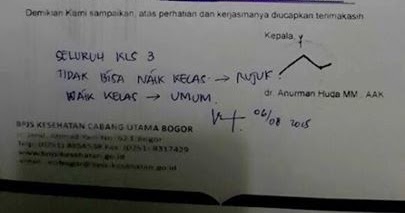 Demikian Kami sampaikan, atas perhatian dan kerjasmanya diucapkan terimakasih
Kepala,
SELURUH KLS 3
TIDAK BISA NAIK KELAS → RUJUK
NAIK KELAS → UMUM
dr. Anurman Huda MM, AAK
06/08 2015
BPJS KESEHATAN CABANG UTAMA BOGOR
Jl. Jend. Ahmad Yani No. 62 E Bogor
www.bpjs-kesehatan.go.id